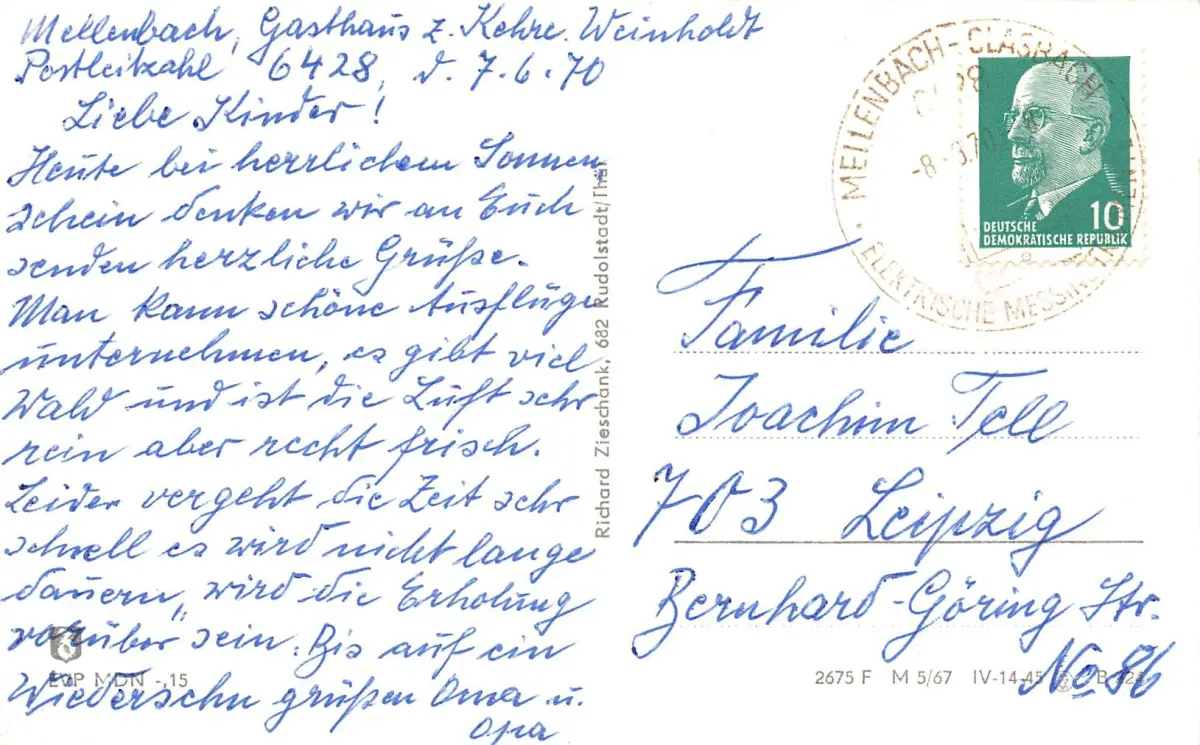 Mellenbach, Gasthaus z. Kehre. Weinholdt
Postleitzahl 6428, d. 7.6.70
Liebe Kinder!
Heute bei herrlichem Sonnen,
schein denken wir an Euch
senden herzliche Grüße.
Man kann schöne Ausflüge
unternehmen, es gibt viel
Wald und ist die Luft sehr
rein aber recht frisch.
Leider vergeht die Zeit sehr
schnell es wird nicht lange
dauern, wird die Erholung
vorüber sein. Bis auf ein
Wiedersehn grüßen Oma u.
Opa
EVP MDN -,15
Richard Zieschank, 682 Rudolstadt/Thür
MELLENBACH-GLASBACH
ELEKTRISCHE
10
DEUTSCHE
DEMOKRATISCHE REPUBLIK
Familie
Joachim Tell
703 Leipzig
Bernhard-Göring Str.
No 86
2675 F M 5/67 IV-14-45 B 324